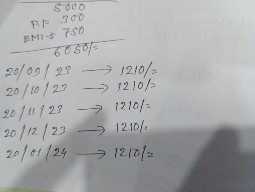 5000
P.F 300
EMI-S 750
6050/=
20/09/23 → 1210/=
20/10/23 → 1210/=
20/11/23 → 1210/=
20/12/23 → 1210/=
20/01/24 → 1210/=